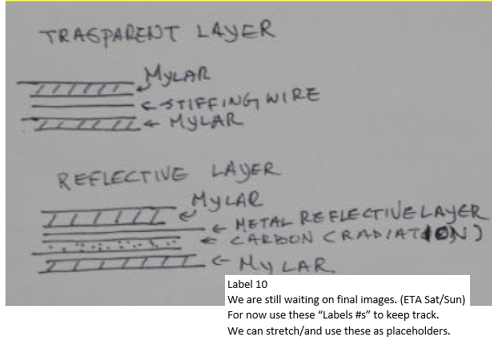 TRASPARENT LAYER
MYLAR
STIFFING WIRE
MYLAR
REFLECTIVE LAYER
MYLAR
METAL REFLECTIVE LAYER
CARBON (RADIATION)
MYLAR
Label 10
We are still waiting on final images. (ETA Sat/Sun)
For now use these “Labels #s” to keep track.
We can stretch/and use these as placeholders.